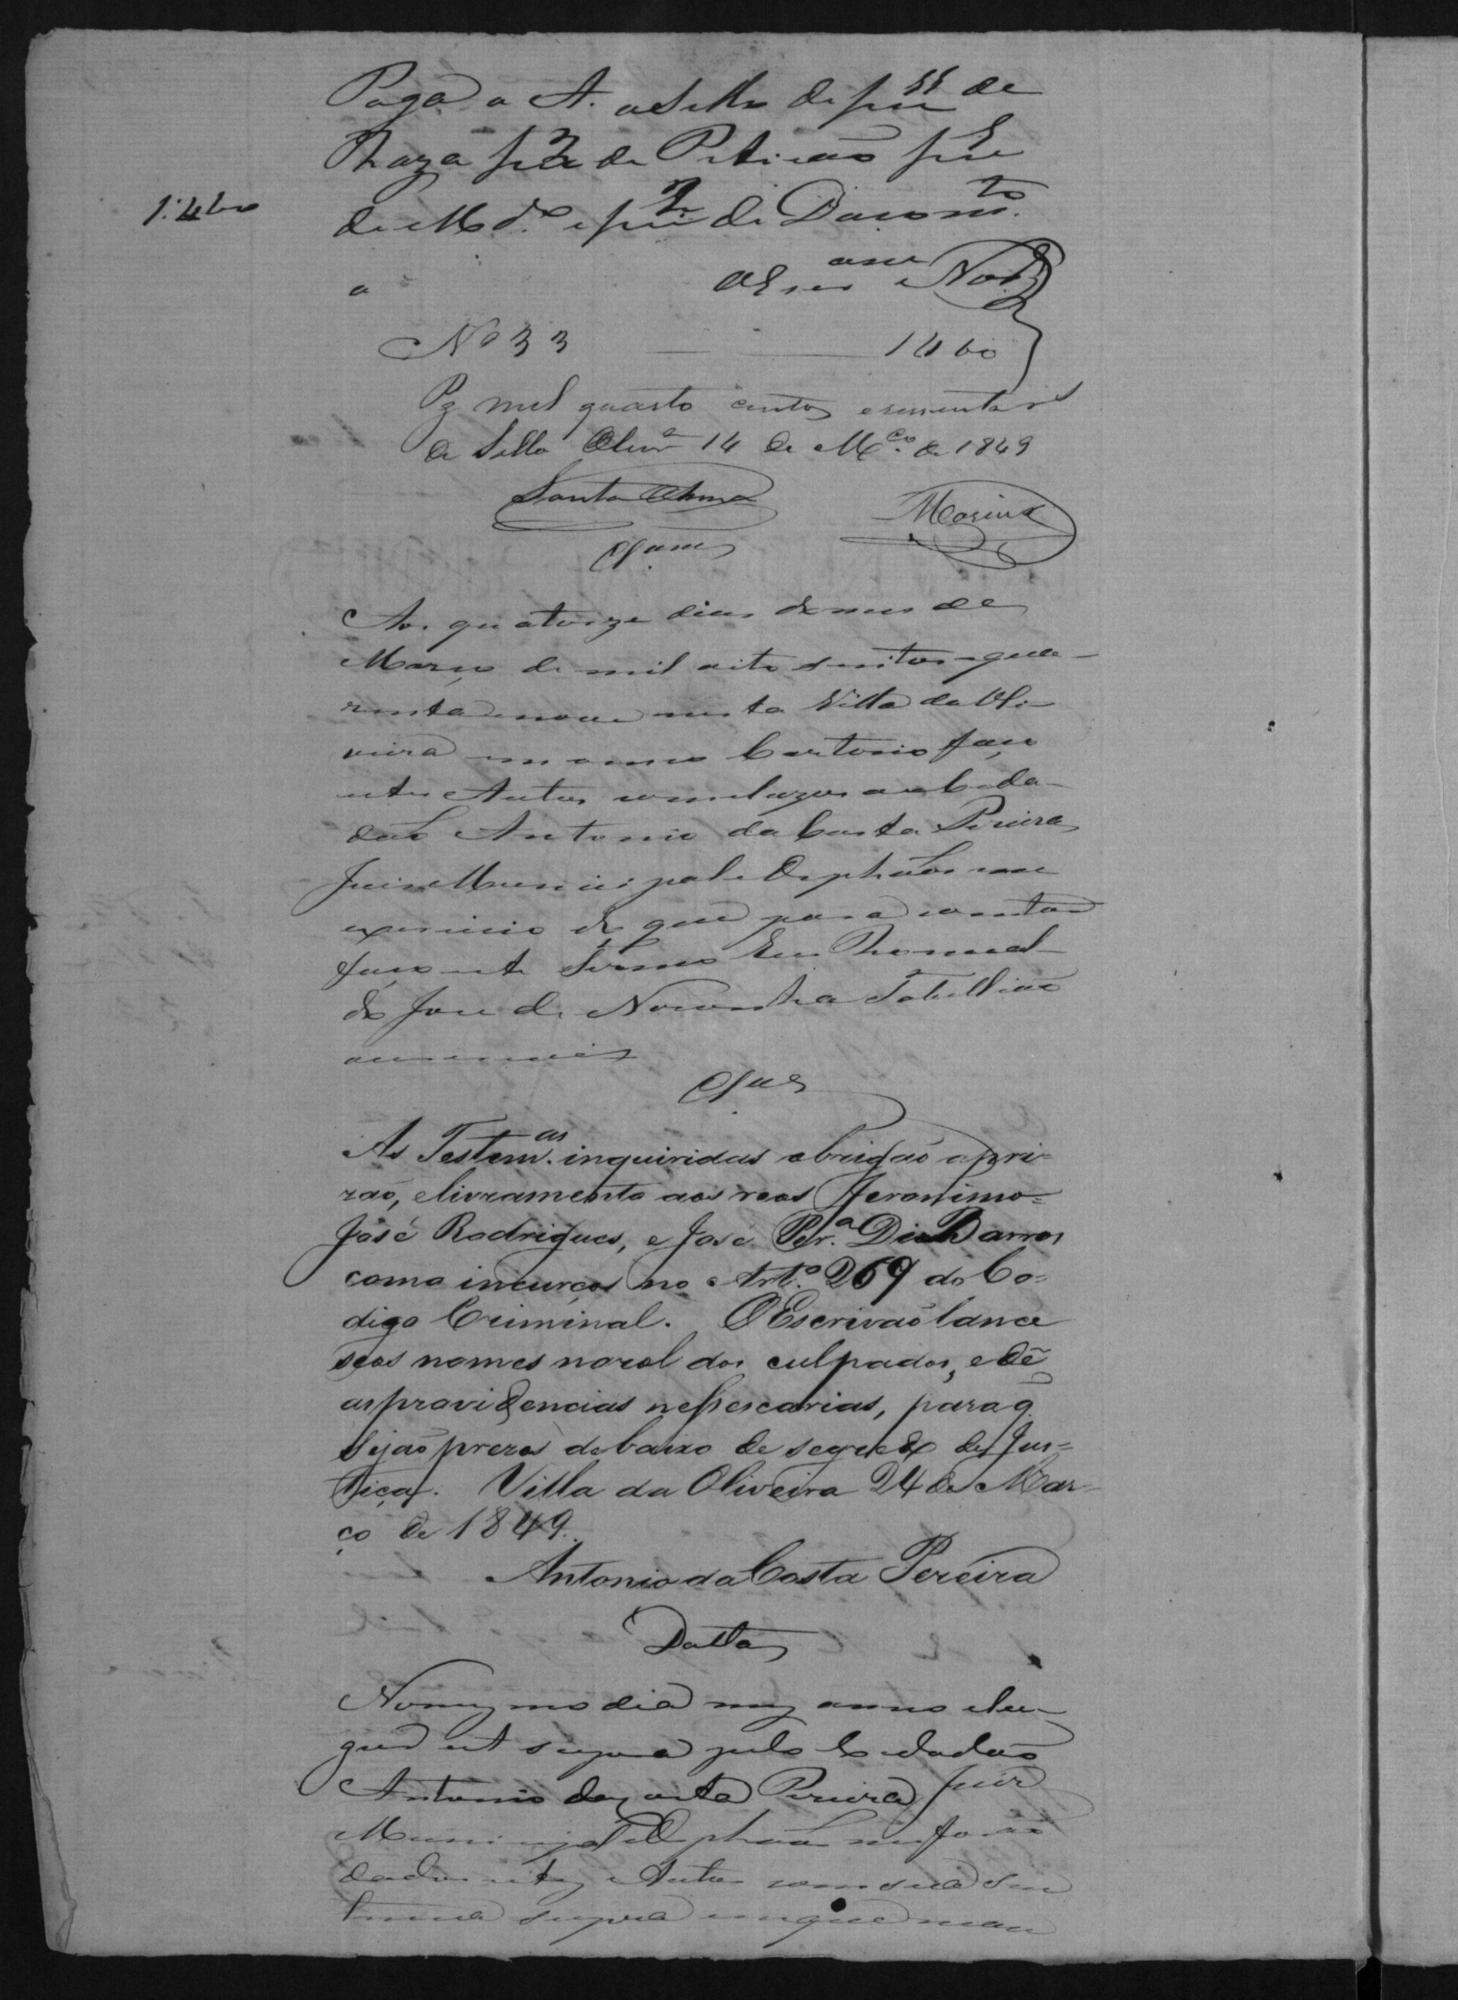 Paga o A. o Sello de de
Raza de Petição
1:460
de Md.º e de Docum.to
o
Nº 33 1460
Pg mil quatro centos e secenta rs
de Sello Olivr.ª 14 de M.ço de 1849
Santa Anna Marinx
Aos quatorze dias do mes de
Março de mil oito sentos e qua-
renta e nove nesta Villa da Oli-
veira em o meo Cartorio faço
estes Autos conclusos ao Cida-
dão Antonio da Costa Pereira
Juis Municipal e Orphãos em
exersicio de que para constar
faço este Termo Eu Romual-
do Jose de Noronha Tabellião
escrevi
As Testem.as inquiridas obrigão a pri-
zão, e livramento aos reos Jeronimo
José Rodrigues, e José Per.ª De Barros
como incurços no Art.º 269 do Co-
digo Criminal. O Escrivão lance
seos nomes no rol dos culpados, e dê
as providencias nessescarias, para q
sejão prezos debaixo de segredo de Jus-
tiça. Villa da Oliveira 24 de Mar-
ço de 1849.
Antonio da Costa Pereira
Datta
No mesmo dia mes anno e lu-
gar ut supra pelo Cidadão
Antonio da Costa Pereira Juis
Municipal e Orphãos me forão
dados estes Autos com sua Sen
tença supra em que man